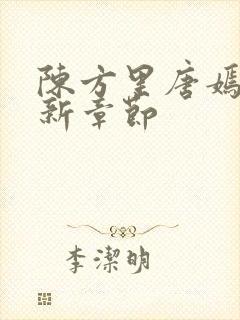 陳方里唐嫣
新章節
李潔明